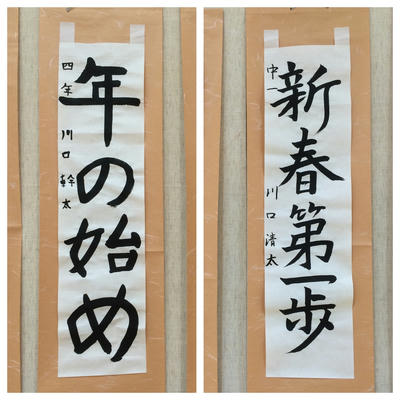 年の始め
四年 川口幹太
新春第一歩
中一 川口清太